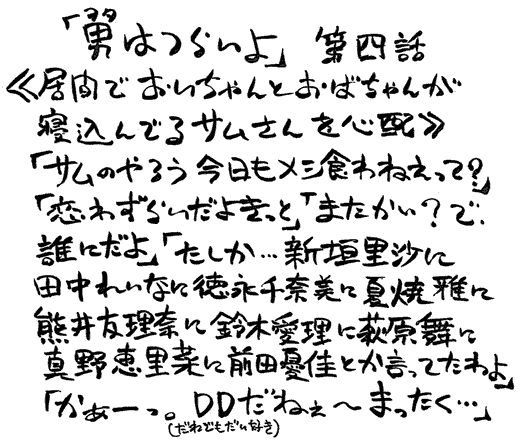 「男はつらいよ」 第四話
≪居間でおいちゃんとおばちゃんが
寝込んでるサムさんを心配≫
「サムのやろう今日もメシ食わねえって?」
「恋わずらいだよきっと」「またかい?で、
誰にだよ」「たしか…新垣里沙に
田中れいなに徳永千奈美に夏焼雅に
熊井友理奈に鈴木愛理に萩原舞に
真野恵里菜に前田憂佳とか言ってたわよ」
「かぁーっ。DDだねぇ〜まったく…」
(だれでもだい好き)